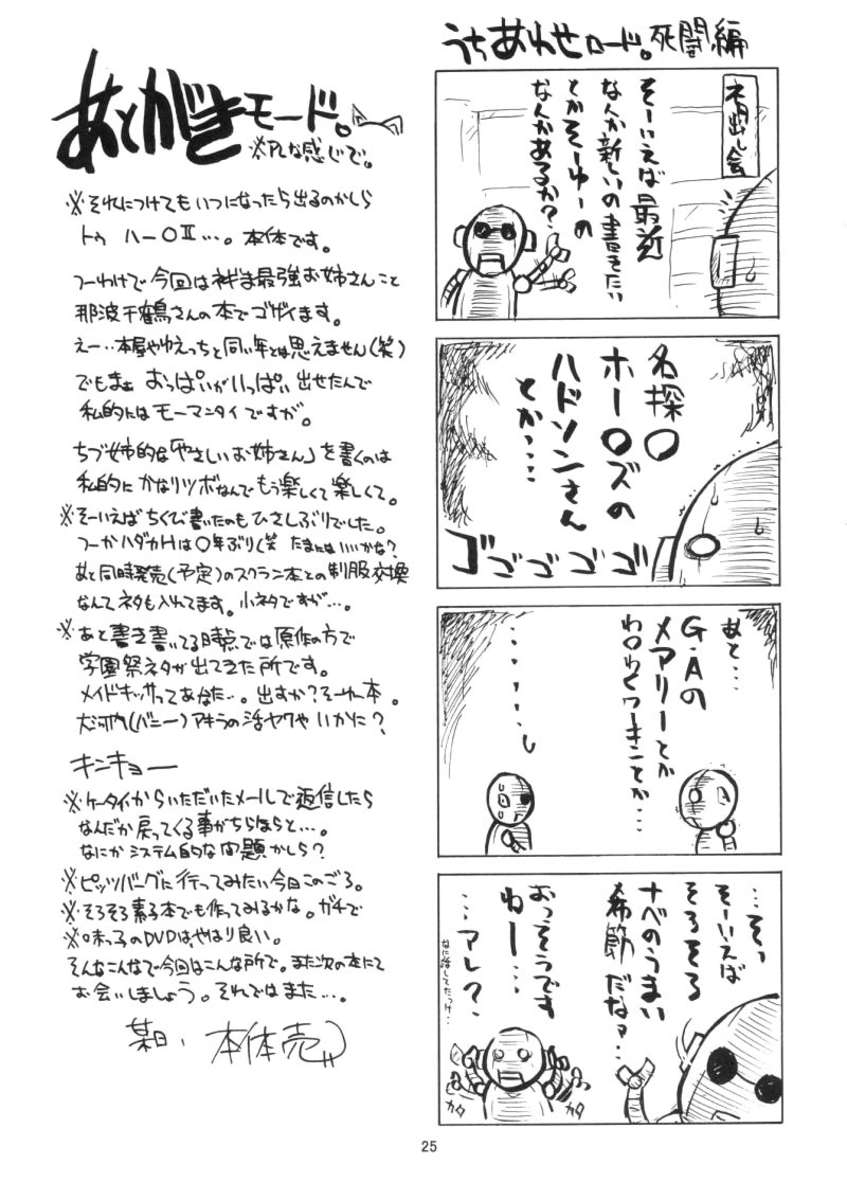 うちあわせロード。死闘編
ネタ出し会
そーいえば最近
なんか新しいの書きたい
とかそーゆーの
なんかあるか?
名探〇
ホー〇ズの
ハドソンさん
とか…
ゴゴゴゴゴ
あと…
G・Aの
メアリーとか
わ〇わくつーきことか…
……し
…そっ
そーいえば
そろそろ
ナベのうまい
季節だなァ…
おっそうです
ねー…
…アレ?
なに話してたっけ…
カタ
カタ
あとがきモード。
※PLな感じで。
※それにつけてもいつになったら出るのかしら
トゥ ハー〇Ⅱ…。本体です。
つーわけで今回はネギま最強お姉さんこと
那波千鶴さんの本でゴザイます。
えー‥本屋やゆえっちと同い年とは思えません(笑)
でもまぁ おっぱいがいっぱい出せたんで
私的にはモーマンタイですが。
ちづ姉的な「やさしいお姉さん」を書くのは
私的にかなりツボなんでもう楽しくて楽しくて。
※そーいえばちくび書いたのもひさしぶりでした。
つーかハダカHは〇年ぶり(笑 たまにはいいかな?
あと同時発売(予定)のスクラン本との制服交換
なんてネタも入れてます。小ネタですが…。
※あと書き書いてる時点では原作の方で
学園祭ネタが出てきた所です。
メイドキッサってあなた‥。出すか?そーゆー本。
大河内(バニー)アキラの活ヤクやいかに?
キンキョー
※ケータイからいただいたメールで返信したら
なんだか戻ってくる事がちらほらと…。
なにかシステム的な問題かしら?
※ピッツバーグに行ってみたい今日このごろ。
※そろそろ素子本でも作ってみるかな。ガチで
※味っ子のDVDはやはり良い。
そんなこんなで今回はこんな所で。また次の本にて
お会いしましょう。それではまた…。
某日、本体売
25